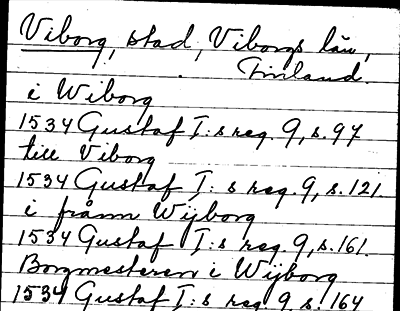 Viborg, stad, Viborgs län,
Finland.
i Wiborg
1534 Gustaf I:s reg. 9, s. 97
till Viborg
1534 Gustaf I:s reg. 9, s. 121.
i frånn Wijborg
1534 Gustaf I:s reg. 9, s. 161.
Borgmesteren i Wijborg
1534 Gustaf I:s reg. 9 s. 164